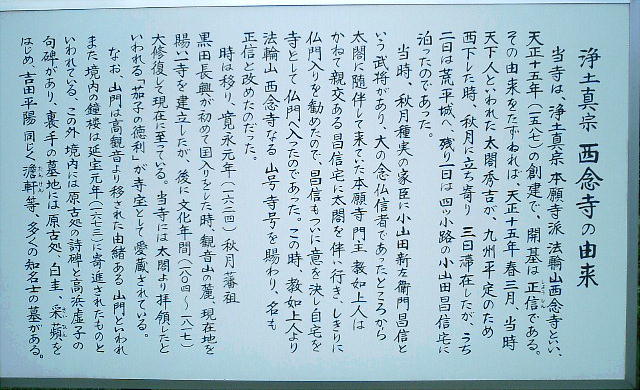 浄土真宗 西念寺の由来
当寺は、浄土真宗 本願寺派 法輪山西念寺といい、
天正十五年(一五八七)の創建で、開基は正信である。
その由来をたずねれば 天正十五年 春三月、当時
天下人といわれた太閤秀吉が、九州平定のため
西下した時、秋月に立ち寄り 三日滞在したが、うち
二日は荒平城へ、残り一日は四ッ小路の小山田昌信宅に
泊ったのであった。
当時、秋月種実の家臣に小山田新左衛門昌信と
いう武将があり、大の念仏信者であったところから
太閤に随伴して来ていた本願寺 門主 教如上人は
かねて親交ある昌信宅に太閤を伴い行き、しきりに
仏門入りを勧めたので、昌信もついに意を決し自宅を
寺として仏門へ入ったのであった。この時、教如上人より
法輪山 西念寺なる 山号 寺号を賜わり、名も
正信と改めたのだった。
時は移り、寛永元年(一六二四)秋月藩祖
黒田長興が初めて国入りをした時、観音山の麓、現在地を
賜い寺を建立したが、後に文化年間(一八〇四〜一八一七)
大修復して現在に至っている。当寺には太閤より拝領したと
いわれる「茄子の徳利」が寺宝として愛蔵されている。
なお、山門は高観音より移された由緒ある 山門といわれ
また 境内の鐘楼は延宝元年(一六七三)に寄進されたものと
いわれている。この外 境内には原古処の詩碑と高浜虚子の
句碑があり、裏手の墓地には 原古処、白圭、采蘋を
はじめ、吉田平陽 同じく 澹軒等、多くの知名士の墓がある。